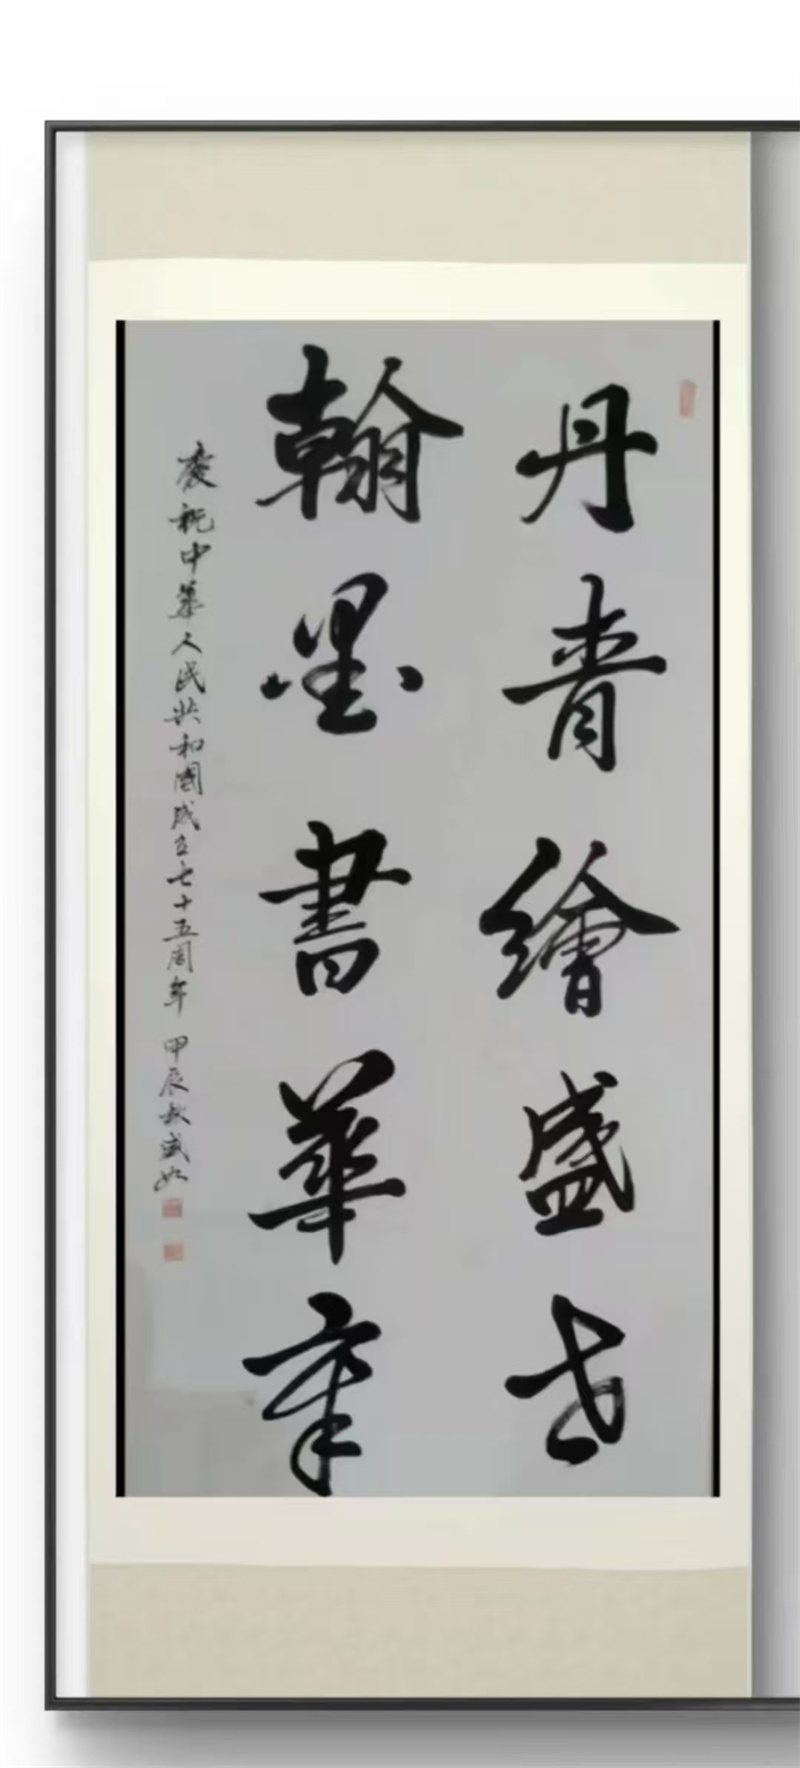 丹青繪盛世
翰墨書華章
慶祝中華人民共和國成立七十五周年 甲辰秋盛如